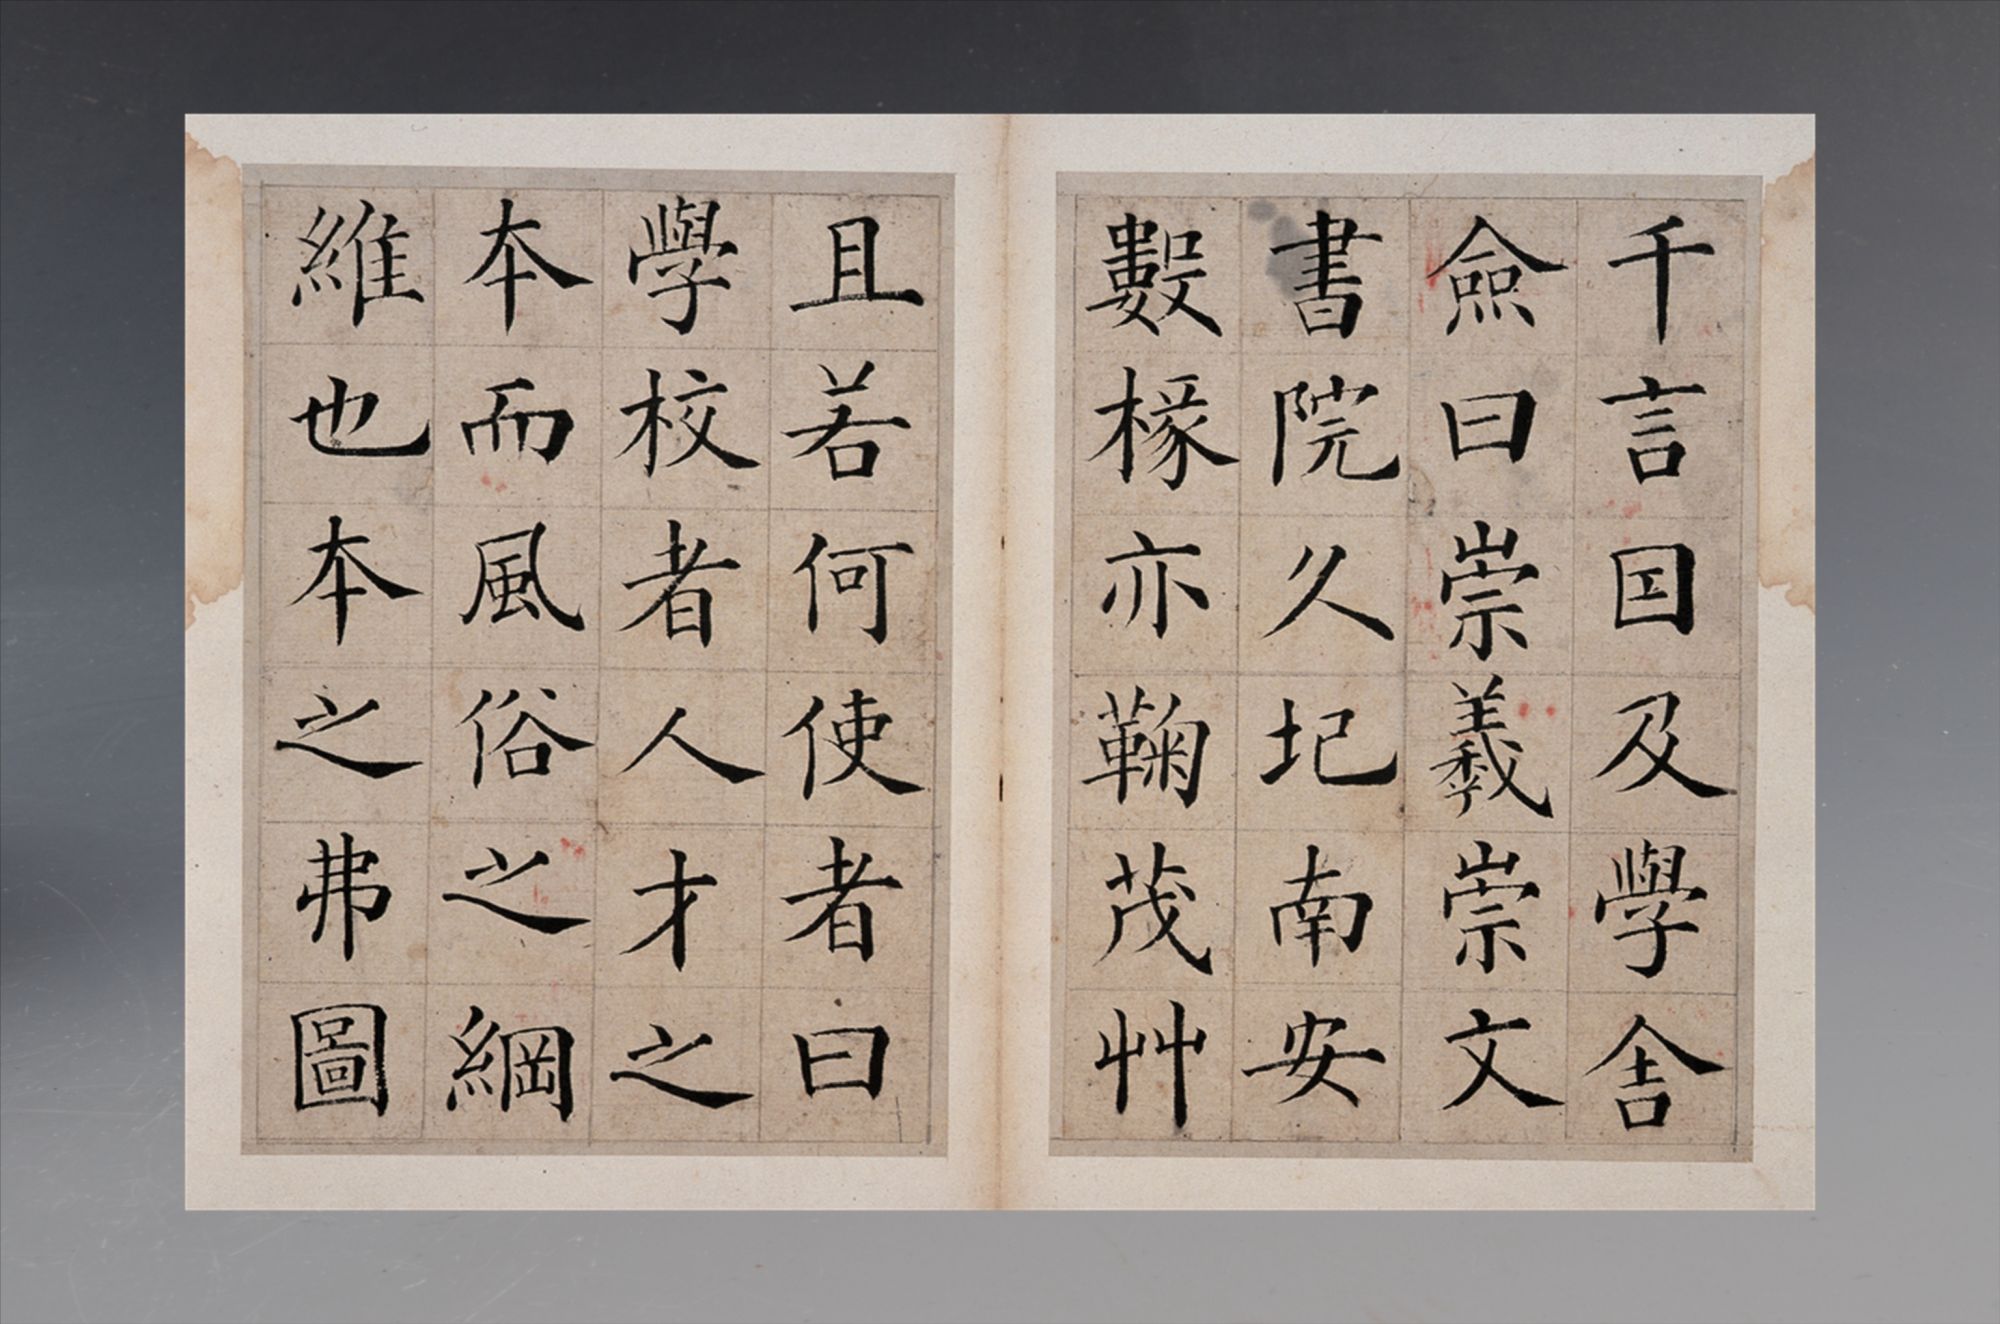 千言国及學舎
僉曰崇義崇文
書院久圮南安
數椽亦鞠茂艸
且若何使者曰
學校者人才之
本而風俗之綱
維也本之弗圖